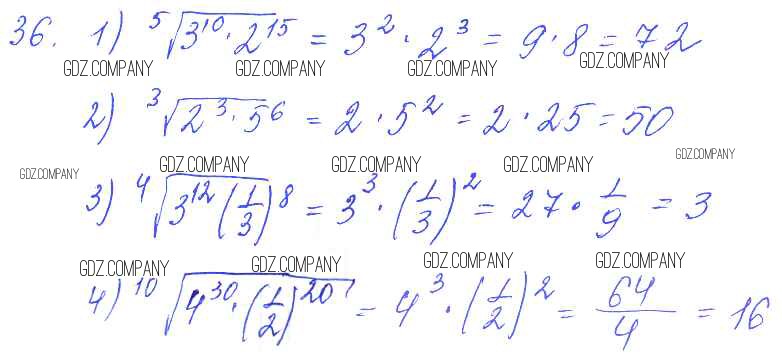 36. 1) ⁵√(3¹⁰·2¹⁵) = 3²·2³ = 9·8 = 72
GDZ.COMPANY GDZ.COMPANY GDZ.COMPANY GDZ.COMPANY
2) ³√(2³·5⁶) = 2·5² = 2·25 = 50
GDZ.COMPANY GDZ.COMPANY GDZ.COMPANY GDZ.COMPANY GDZ.COMPANY
3) ⁴√(3¹²(1/3)⁸) = 3³·(1/3)² = 27·1/9 = 3
GDZ.COMPANY GDZ.COMPANY GDZ.COMPANY GDZ.COMPANY
4) ¹⁰√(4³⁰·(1/2)²⁰) = 4³·(1/2)² = 64/4 = 16